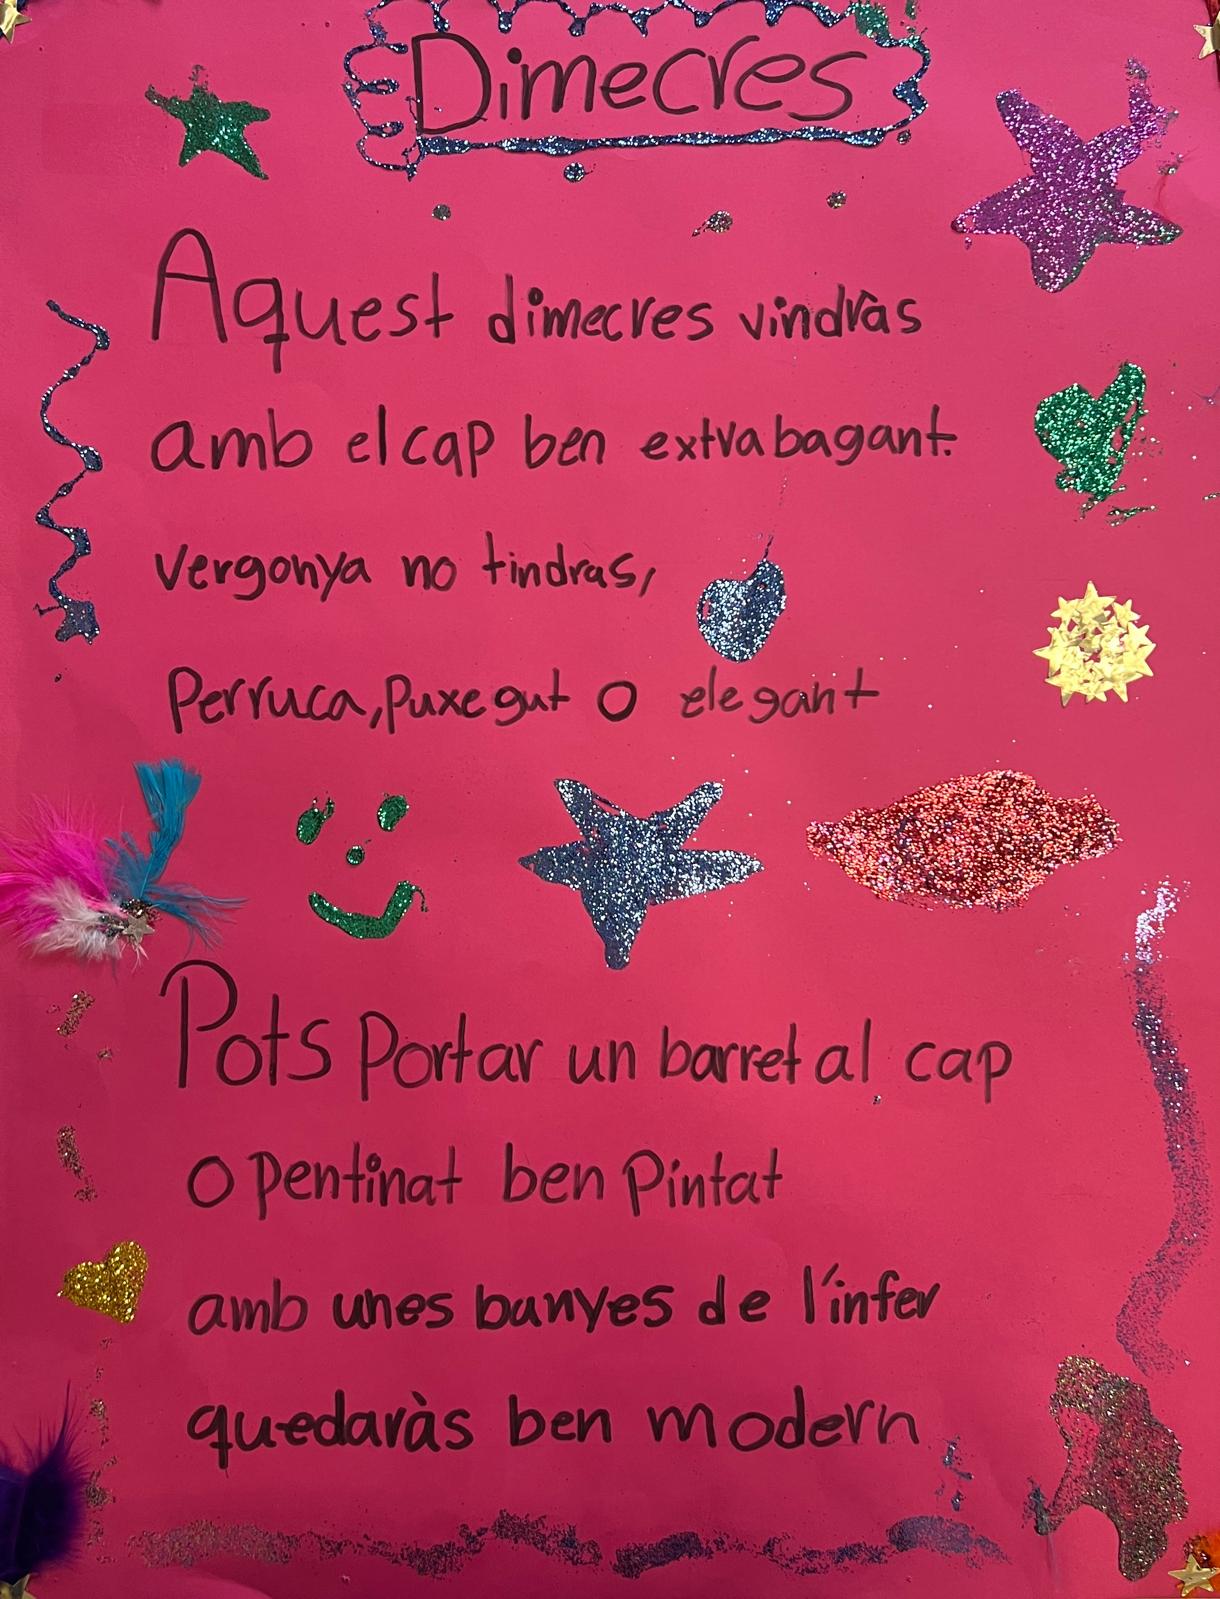 Dimecres
Aquest dimecres vindràs
amb el cap ben extrabagant.
vergonya no tindras,
Perruca, Puxegut o elegant
Pots Portar un barret al cap
o Pentinat ben Pintat
amb unes banyes de l'infer
quedaràs ben modern